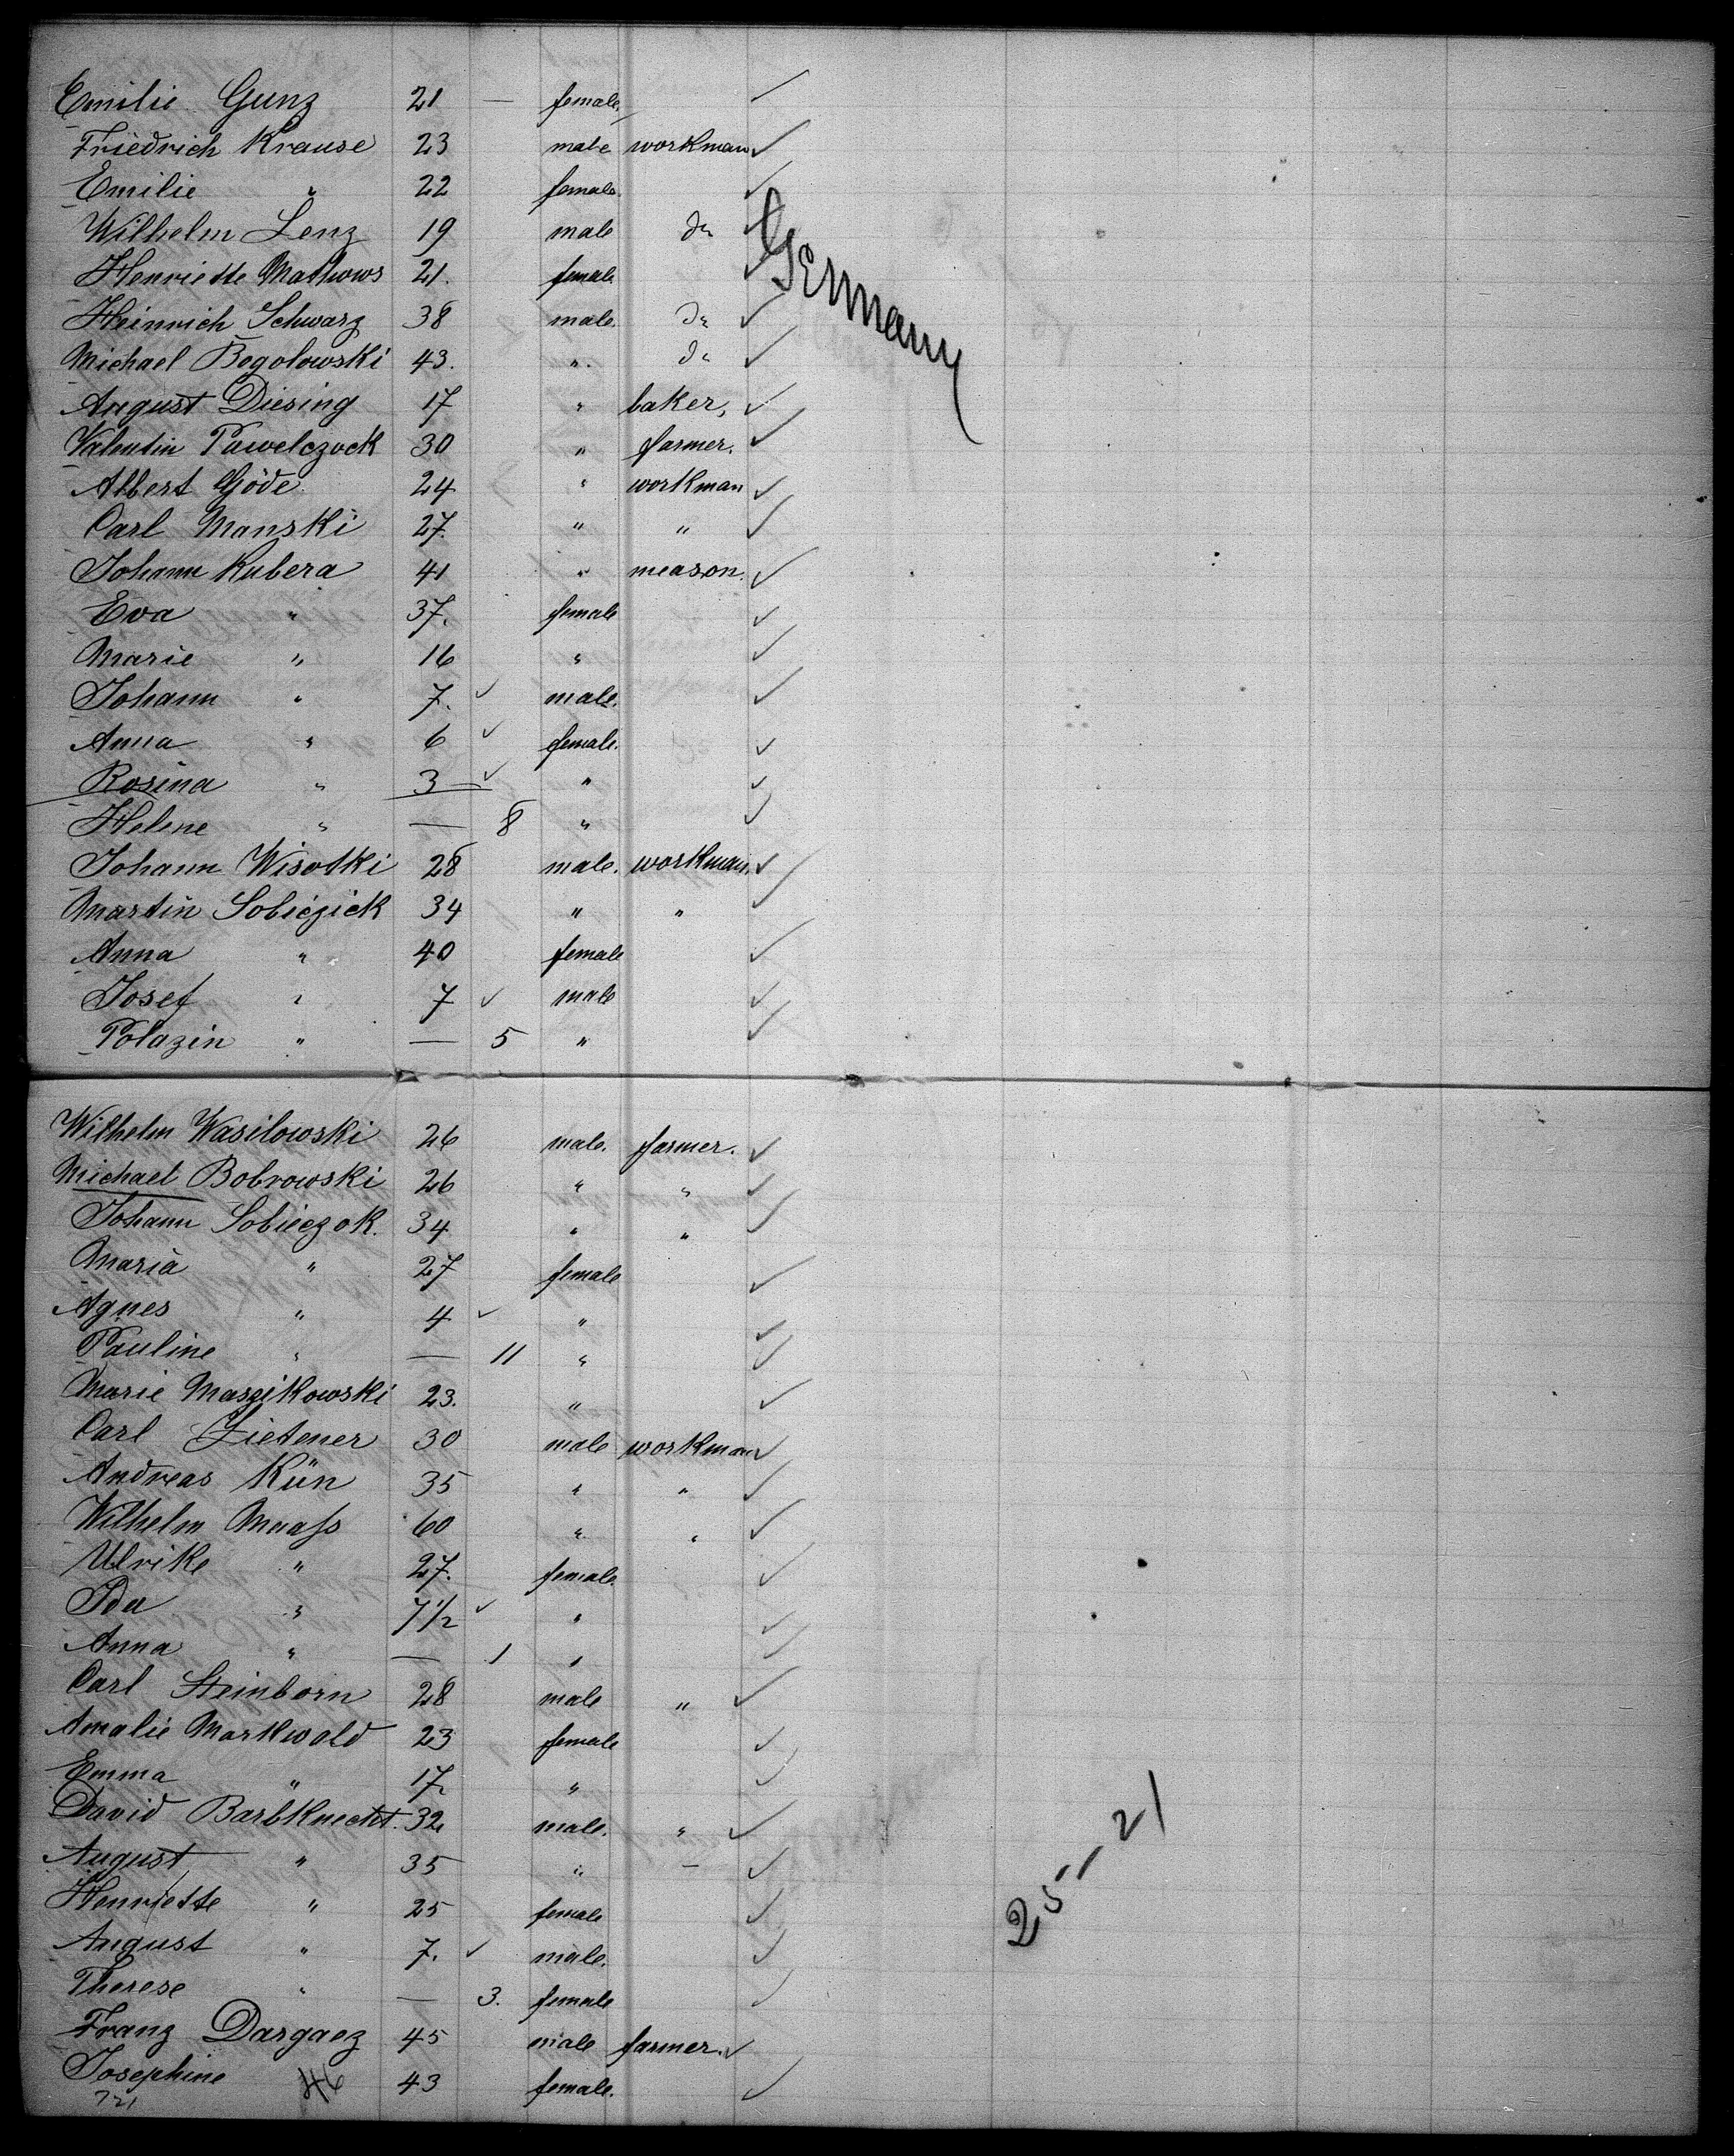 Emilie Gunz 21 — female.
Friedrich Krause 23 male workman
Emilie " 22 female.
Wilhelm Lenz 19 male do
Henriette Mathows 21. female
Heinrich Schwarz 38 male. do
Michael Bogolowski 43. " do
August Diesing 17 " baker,
Valentin Pawelczock 30 " farmer.
Albert Göde 24 " workman
Carl Manski 27. " "
Johann Kubera 41 " meason.
Eva " 37. female
Marie " 16 "
Johann " 7. ✓ male.
Anna " 6 ✓ female.
Rosina " 3 ✓ "
Helene " — 8 "
Johann Wisotki 28 male. workman.
Martin Sobiczick 34 " "
Anna " 40 female
Josef " 7 ✓ male
Polazin " — 5 "
Germany
Wilhelm Wasilowski 26 male. farmer.
Michael Bobrowski 26 " "
Johann Sobieczok. 34 " "
Maria " 27 female
Agnes " 4 ✓ "
Pauline " — 11 "
Marie Maszikowski 23. "
Carl Zietener 30 male workman
Andreas Kün 35 " "
Wilhelm Maass 60 " "
Ulrike " 27. female.
Ida " 7 1/2 ✓ "
Anna " — 1 "
Carl Steinborn 28 male "
Amalie Markwald 23 female
Emma " 17. "
David Barbknecht. 32 male. "
August " 35 " —
Henriette " 25 female
August " 7. ✓ male.
Therese " — 3. female
Franz Dargacz 45 male farmer.
Josephine 43 female.
46
721
25-21